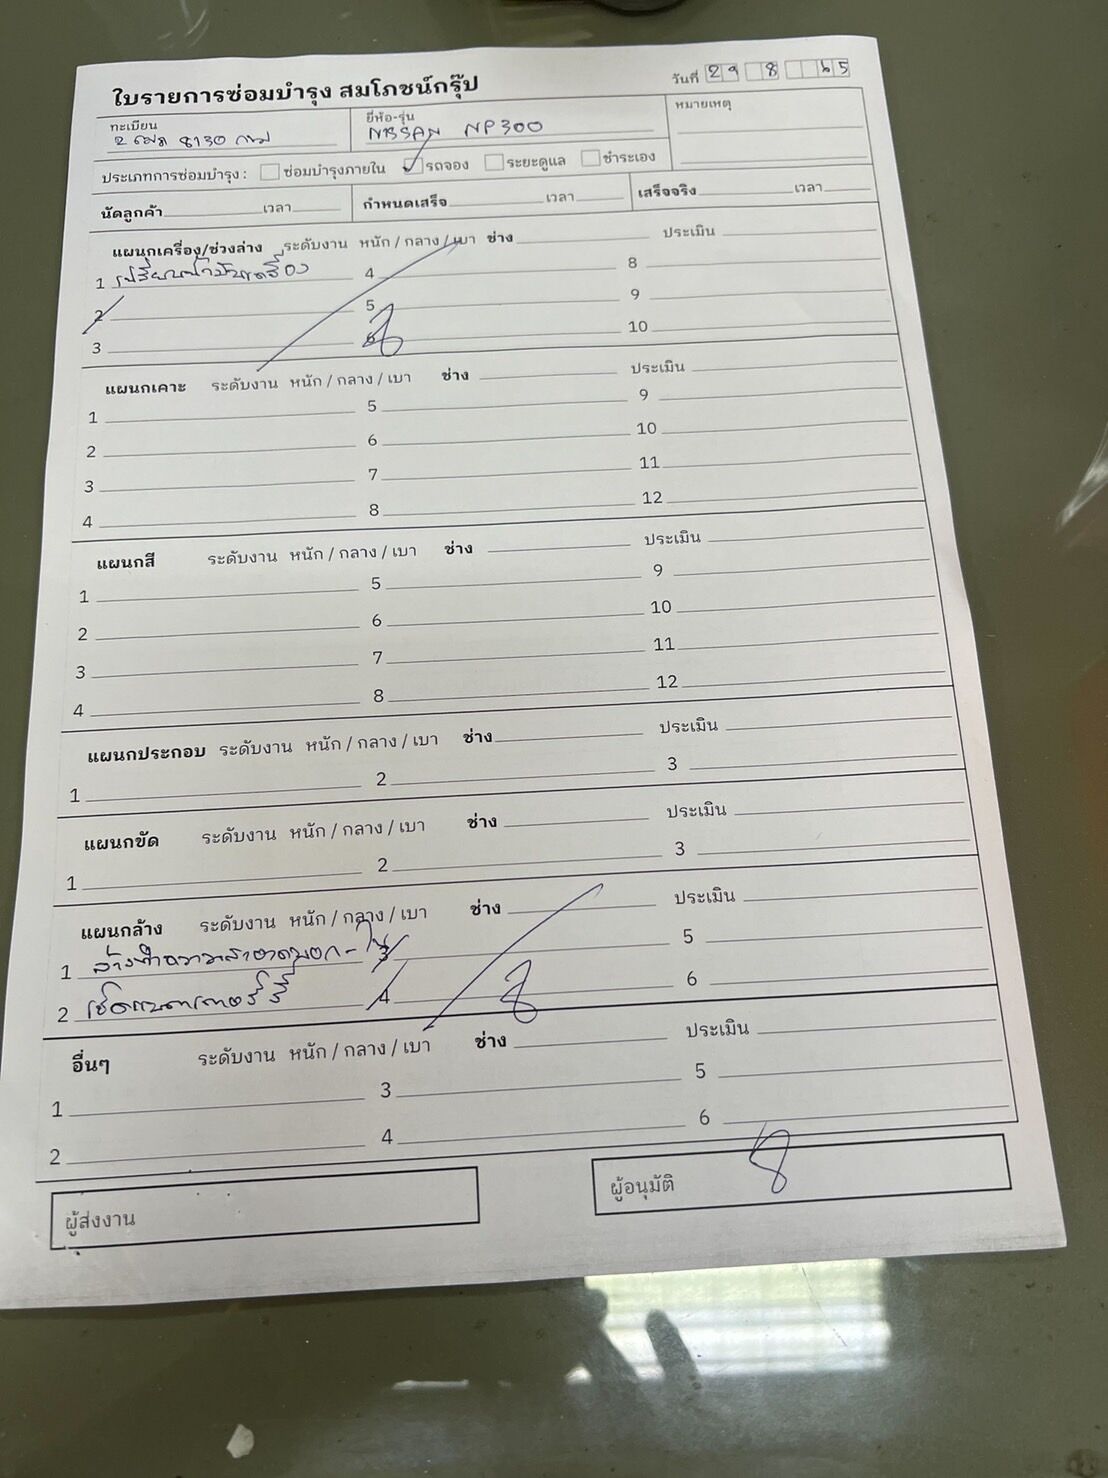 ใบรายการซ่อมบำรุง สมโภชน์กรุ๊ป
วันที่ 29 8 65
ทะเบียน ยี่ห้อ-รุ่น หมายเหตุ
8130 NISSAN NP300
ประเภทการซ่อมบำรุง : ซ่อมบำรุงภายใน รถจอง ระยะดูแล ชำระเอง
นัดลูกค้า เวลา กำหนดเสร็จ เวลา เสร็จจริง เวลา
แผนกเครื่อง/ช่วงล่าง ระดับงาน หนัก / กลาง / เบา ช่าง ประเมิน
1 เปลี่ยนน้ำมันเครื่อง 4 8
2 5 9
3 6 10
แผนกเคาะ ระดับงาน หนัก / กลาง / เบา ช่าง ประเมิน
1 5 9
2 6 10
3 7 11
4 8 12
แผนกสี ระดับงาน หนัก / กลาง / เบา ช่าง ประเมิน
1 5 9
2 6 10
3 7 11
4 8 12
แผนกประกอบ ระดับงาน หนัก / กลาง / เบา ช่าง ประเมิน
1 2 3
แผนกขัด ระดับงาน หนัก / กลาง / เบา ช่าง ประเมิน
1 2 3
แผนกล้าง ระดับงาน หนัก / กลาง / เบา ช่าง ประเมิน
1 ล้างทำความสะอาดนอก-ใน 3 5
2 เช็คแบตเตอรี่ 4 6
อื่นๆ ระดับงาน หนัก / กลาง / เบา ช่าง ประเมิน
1 3 5
2 4 6
ผู้ส่งงาน ผู้อนุมัติ